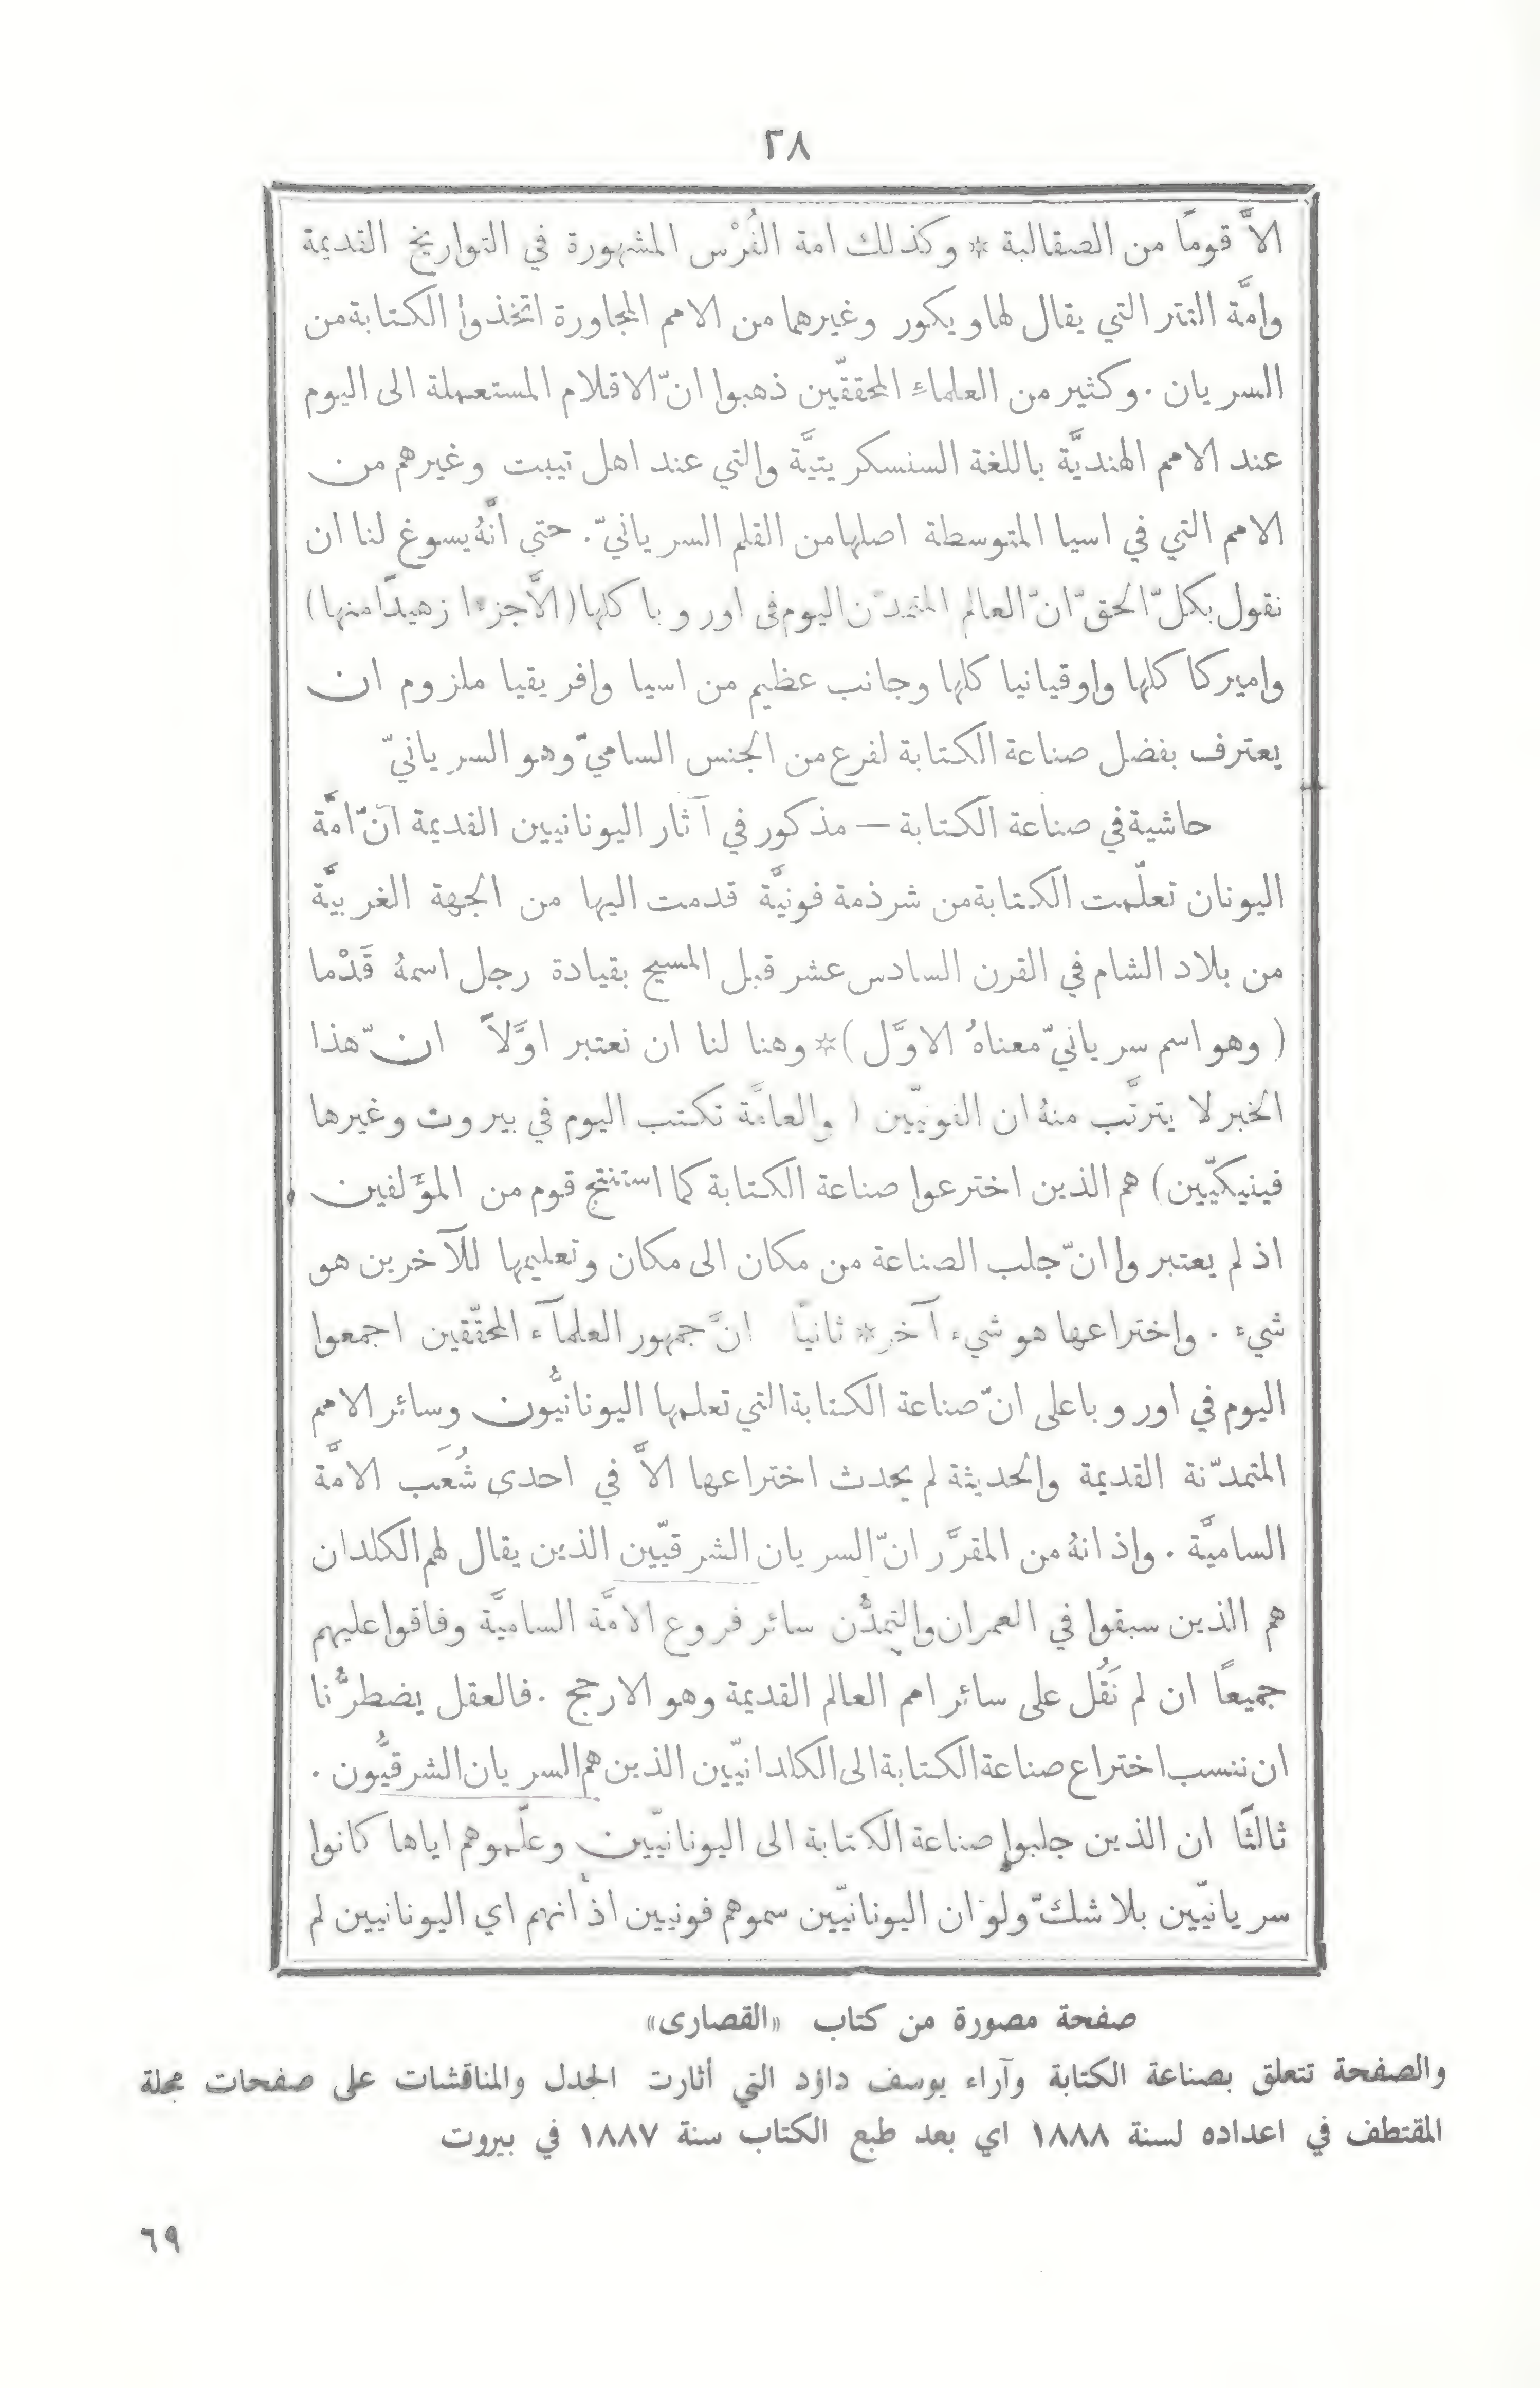 ٢٨
الاَّ قوماً من الصقالبة * وكذلك امة الفُرْس المشهورة في التواريخ القديمة
وامَّة التتر التي يقال لها ويكور وغيرهما من الامم المجاورة اتخذوا الكتابة من
السريان . وكثير من العلماءِ المحققّين ذهبوا انّ الاقلام المستعملة الى اليوم
عند الامم الهنديَّة باللغة السنسكريتيَّة والتي عند اهل تيبت وغيرهم من
الامم التي في اسيا المتوسطة اصلها من القلم السريانيّ . حتي انَّهُ يسوغ لنا ان
نقول بكلّ الحقّ انّ العالم المتمدّن اليوم فى اوروبا كلها (الاَّ جزءا زهيداً منها)
واميركا كلها واوقيانيا كلها وجانب عظيم من اسيا وافريقيا ملزوم ان
يعترف بفضل صناعة الكتابة لفرع من الجنس الساميّ وهو السريانيّ
حاشية في صناعة الكتابة — مذكور في آثار اليونانيين القديمة انّ امَّة
اليونان تعلّمت الكتابة من شرذمة فونيَّة قدمت اليها من الجهة الغربيَّة
من بلاد الشام في القرن السادس عشر قبل المسيح بقيادة رجل اسمهُ قَدْما
( وهو اسم سريانيّ معناهُ الاوَّل ) * وهنا لنا ان نعتبر اوَّلاً انّ هذا
الخبر لا يترتَّب منهُ ان الفونيّين ( والعامَّة تكتب اليوم في بيروت وغيرها
فينيكيّين ) هم الذين اخترعوا صناعة الكتابة كما استنتج قوم من المؤَلفين
اذ لم يعتبروا انّ جلب الصناعة من مكان الى مكان وتعليمها للآخرين هو
شيء . واختراعها هو شيء آخر * ثانياً انَّ جمهور العلمآء المحقّقين اجمعوا
اليوم في اوروبا على انّ صناعة الكتابة التي تعلمها اليونانيُّون وسائر الامم
المتمدّنة القديمة والحديثة لم يحدث اختراعها الاَّ في احدى شُعَب الامَّة
الساميَّة . واذ انهُ من المقرَّر انّ السريان الشرقيّين الذين يقال لهم الكلدان
هم الذين سبقوا في العمران والتمدُّن سائر فروع الامَّة الساميَّة وفاقوا عليهم
جميعاً ان لم نَقُل على سائر امم العالم القديمة وهو الارجح . فالعقل يضطرُّنا
ان ننسب اختراع صناعة الكتابة الى الكلدانيّين الذين هم السريان الشرقيُّون .
ثالثاً ان الذين جلبوا صناعة الكتابة الى اليونانيّين وعلّموهم اياها كانوا
سريانيّين بلا شكّ ولو ان اليونانيّين سموهم فونيين اذ انهم اي اليونانيين لم
صفحة مصورة من كتاب «القصارى»
والصفحة تتعلق بصناعة الكتابة وآراء يوسف داؤد التي أثارت الجدل والمناقشات على صفحات مجلة
المقتطف في اعداده لسنة ١٨٨٨ اي بعد طبع الكتاب سنة ١٨٨٧ في بيروت
٦٩